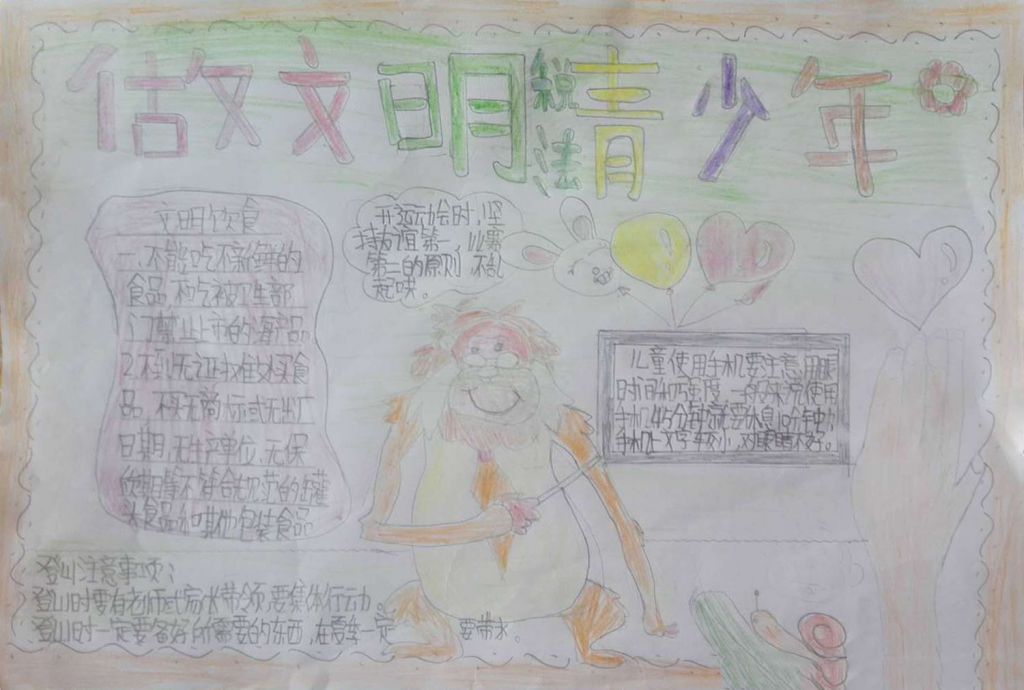 做文明青少年
税法
文明饮食
一、不能吃不新鲜的
食品,不吃被卫生部
门禁止上市的海产品
2.不到无证摊处买食
品,不买无商标或无出厂
日期,无生产单位,无保
质期等不符合规范的罐
头食品和其他包装食品
开运动会时,坚
持友谊第一,比赛
第二的原则,不乱
起哄。
儿童使用手机要注意用眼
时间和强度,一般来说使用
手机45分钟就要休息10分钟,
手机上文字车列小,对眼睛不好。
登山注意事项:
登山时要有老师或家长带领,要集体行动。
登山时一定要备好所需要的东西,在夏季一定 要带水。